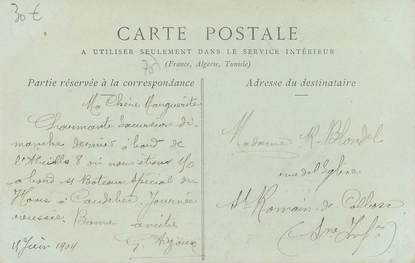 30 €
CARTE POSTALE
A UTILISER SEULEMENT DANS LE SERVICE INTÉRIEUR
(France, Algérie, Tunisie)
Partie réservée à la correspondance
Adresse du destinataire
Ma Chère Marguerite
Charmante excursion di
manche dernier à bord de
où nous étions
à bord Bateau spécial du
Havre à Caudebec. Journée
Bonne amitié
11 Juin 1904
Madame R. Blondel
rue de l'Eglise
St Romain-de-Colbosc
(Sne Infre)